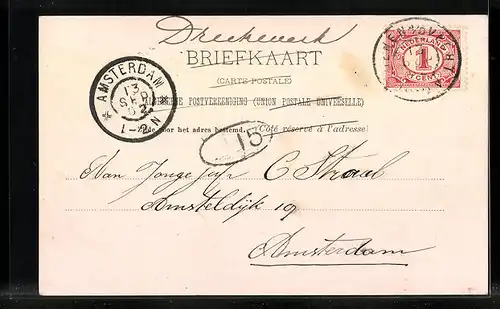 BRIEFKAART
(CARTE POSTALE)
ALGEMEENE POSTVEREENIGING (UNION POSTALE UNIVERSELLE)
Zijde voor het adres bestemd. (Côté réservé à l'adresse)
NEDERLAND
1
CENT
AMSTERDAM
13
SEP
1-2 N
15
Aan Jonge
C Straal
Amsteldijk 19
Amsterdam